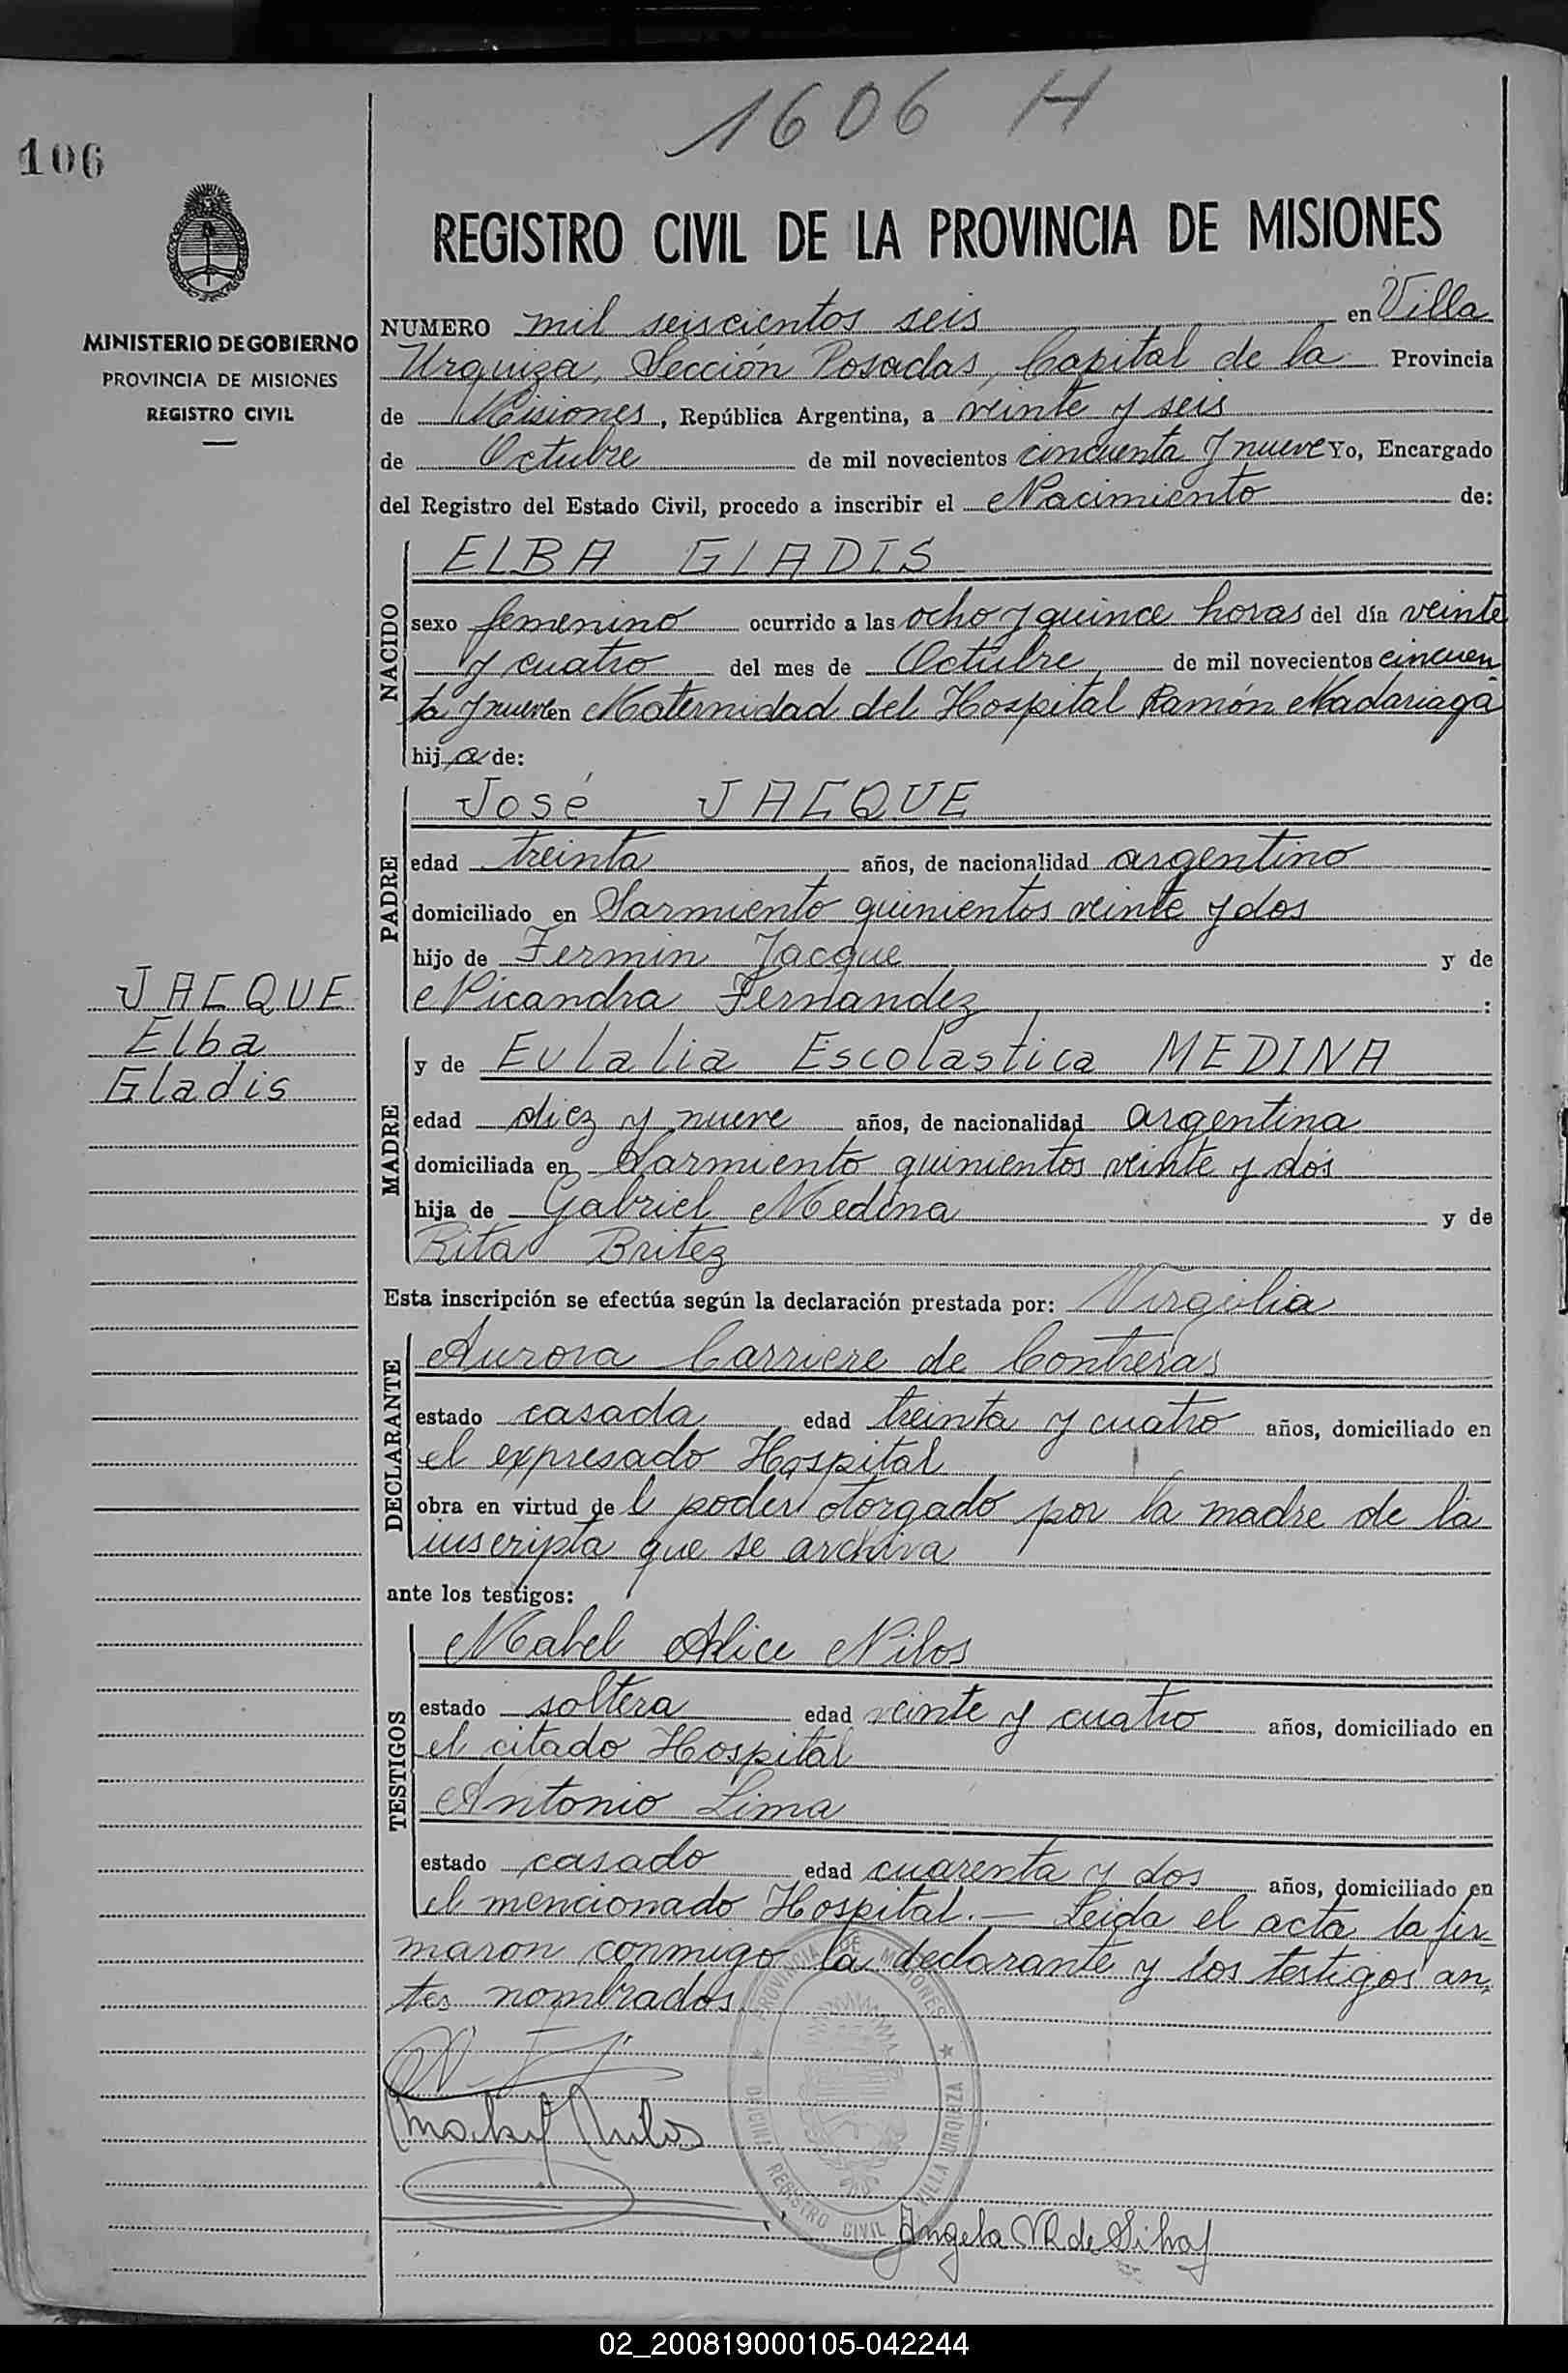 1606 H
106
REGISTRO CIVIL DE LA PROVINCIA DE MISIONES
MINISTERIO DE GOBIERNO
PROVINCIA DE MISIONES
REGISTRO CIVIL
NUMERO mil seiscientos seis en Villa
Urquiza, Sección Posadas, Capital de la Provincia
de Misiones, República Argentina, a veinte y seis
de Octubre de mil novecientos cincuenta y nueve Yo, Encargado
del Registro del Estado Civil, procedo a inscribir el Nacimiento de:
NACIDO
ELBA GLADIS
sexo femenino ocurrido a las ocho y quince horas del día veinte
y cuatro del mes de Octubre de mil novecientos cincuen
ta y nueve en Maternidad del Hospital Ramón Madariaga
hija de:
PADRE
José JACQUE
edad treinta años, de nacionalidad argentino
domiciliado en Sarmiento quinientos veinte y dos
hijo de Fermin Jacque y de
Nicandra Fernandez :
JACQUE
Elba
Gladis
MADRE
y de Eulalia Escolastica MEDINA
edad diez y nueve años, de nacionalidad argentina
domiciliada en Sarmiento quinientos veinte y dos
hija de Gabriel Medina y de
Rita Britez
Esta inscripción se efectúa según la declaración prestada por: Virgilia
DECLARANTE
Aurora Carriere de Contreras
estado casada edad treinta y cuatro años, domiciliado en
el expresado Hospital
obra en virtud del poder otorgado por la madre de la
inscripta que se archiva
ante los testigos:
TESTIGOS
Mabel Alice Nilos
estado soltera edad veinte y cuatro años, domiciliado en
el citado Hospital
Antonio Lima
estado casado edad cuarenta y dos años, domiciliado en
el mencionado Hospital.— Leida el acta la fir-
maron conmigo la declarante y los testigos an-
tes nombrados
PROVINCIA DE MISIONES
OFICINA REGISTRO CIVIL VILLA URQUIZA
Mabel Nilos
Angela de
02_200819000105-042244